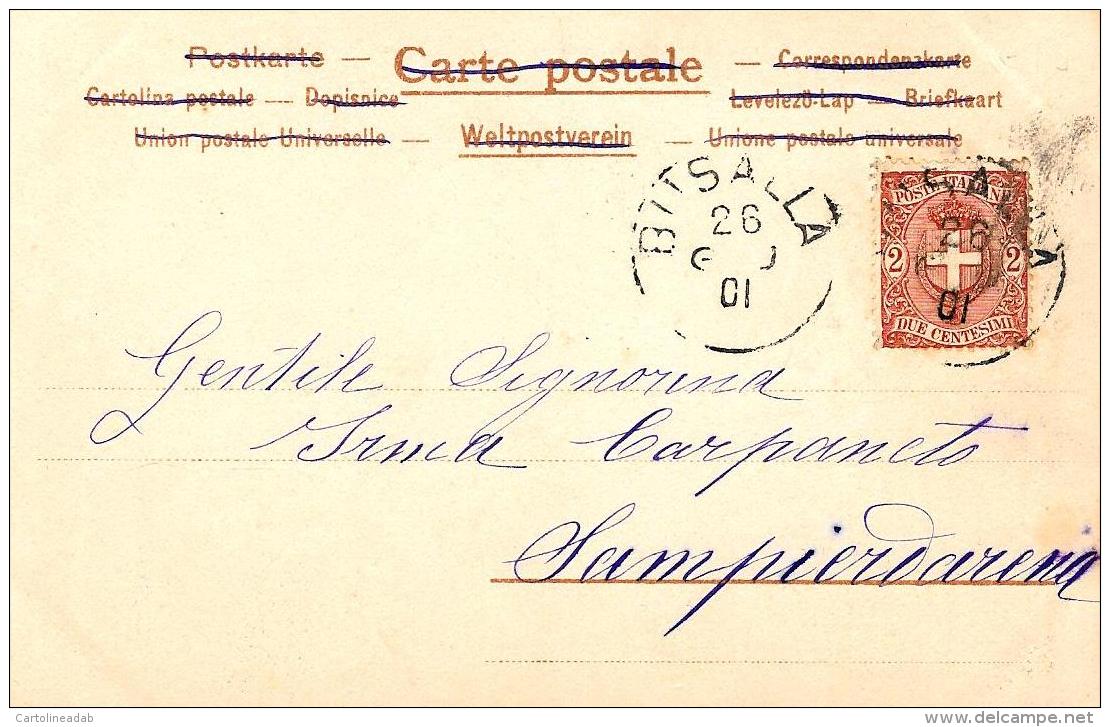 Postkarte — Carte postale — Correspondenzkarte
Cartolina postale — Dopisnice
Levelező-Lap — Briefkaart
Union postale Universelle — Weltpostverein — Unione postale universale
BUSALLA
26
01
POSTE ITALIANE
26
2 2
01
DUE CENTESIMI
Gentile Signorina
Irma Carpaneto
Sampierdarena
Cartolineadab
delcampe.net